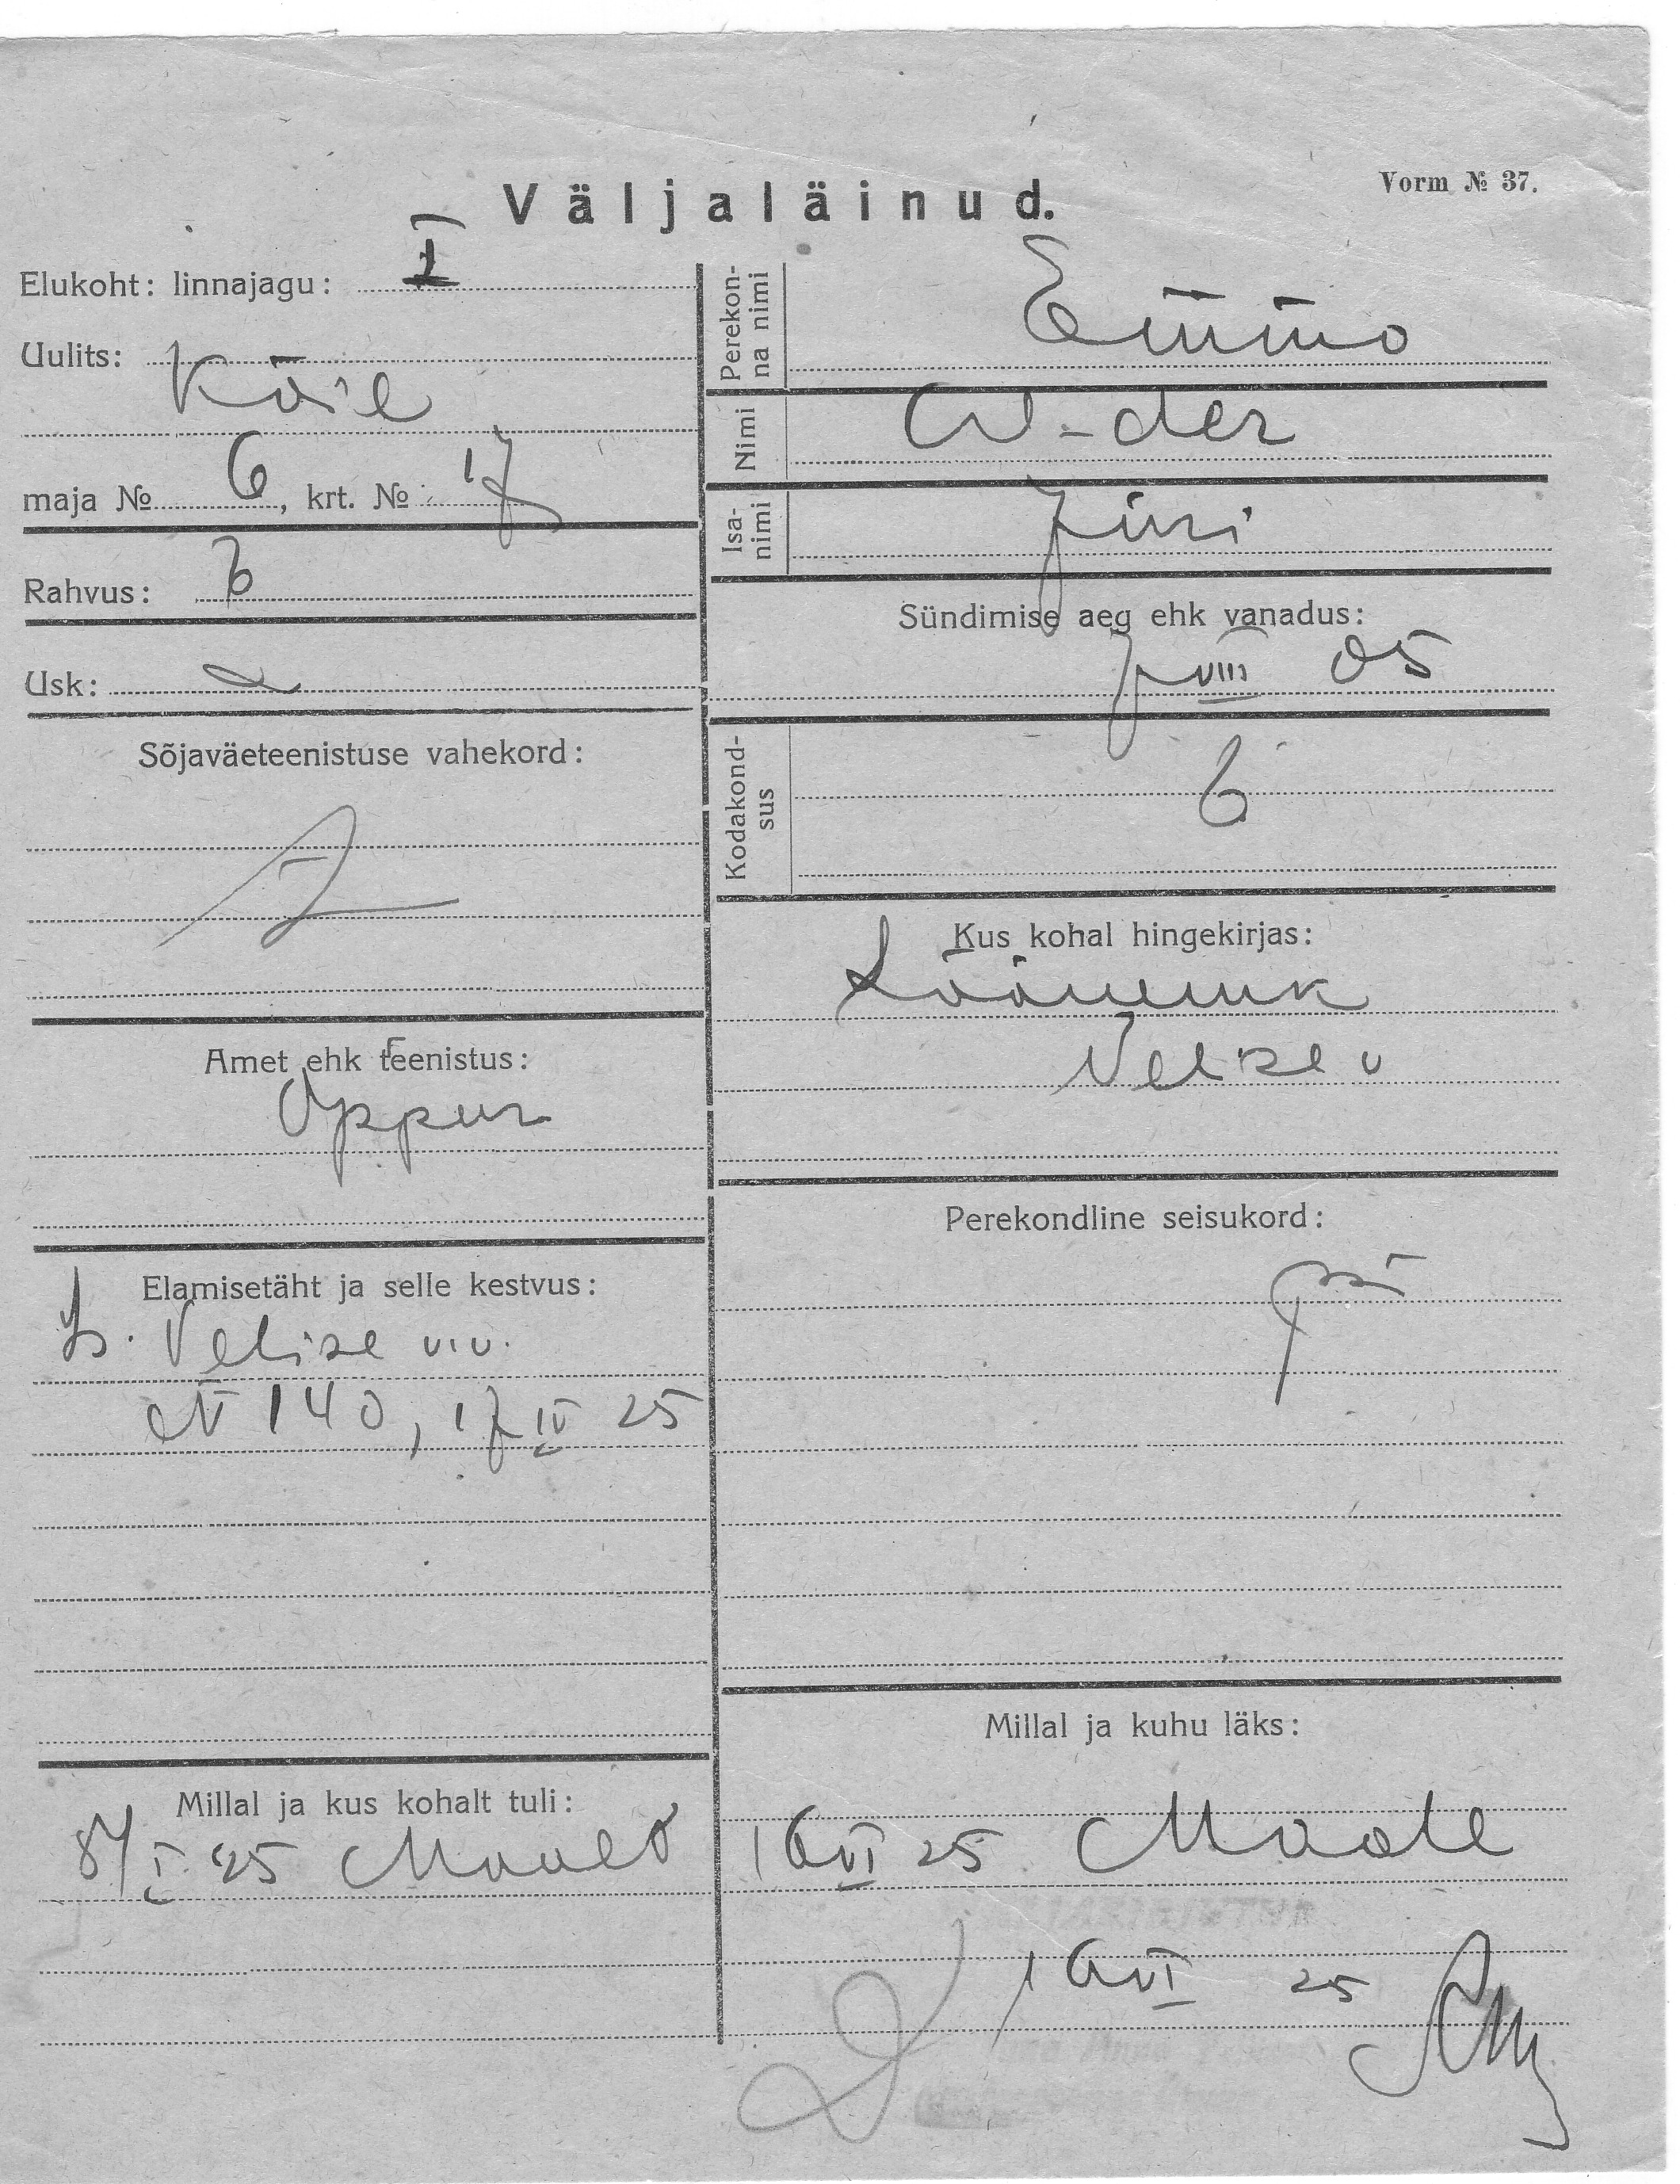 Vorm № 37.
Väljaläinud.
Elukoht: linnajagu: I
Uulits:
Köie
maja № 6, krt. № 17
Rahvus: E
Usk: L
Sõjaväeteenistuse vahekord:
Amet ehk teenistus:
Õppur
Elamisetäht ja selle kestvus:
Velise v.v.
№ 140, 17 IV 25
Millal ja kus kohalt tuli:
25 Maalt
Perekonna nimi
Nimi
W-der
Isanimi
Jüri
Sündimise aeg ehk vanadus:
7 VIII 05
Kodakondsus
E
Kus kohal hingekirjas:
Läänemk
Velise v
Perekondline seisukord:
Millal ja kuhu läks:
16 VI 25 Maale
16 VI 25